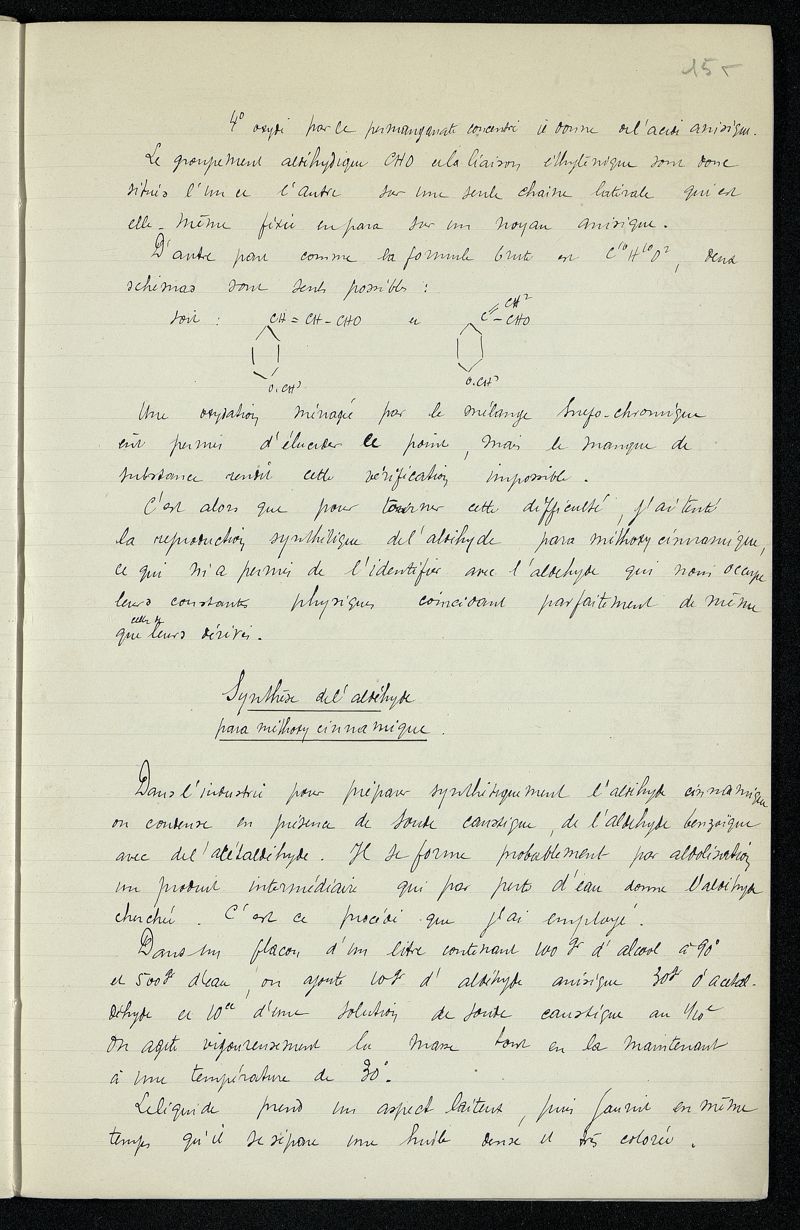 15
4° oxydé par le permanganate concentré il donne de l'acide anisique.
Le groupement aldéhydique CHO et la liaison éthylénique sont donc
situés l'un et l'autre sur une seule chaîne latérale qui est
elle-même fixée en para sur un noyau anisique.
D'autre part comme la formule brute est C¹⁰H¹⁰O², deux
schémas sont seuls possibles :
soit : CH = CH - CHO et C - CHO
CH²
O.CH³ O.CH³
Une oxydation ménagée par le mélange sulfo-chromique
eût permis d'élucider ce point, mais le manque de
substance rendit cette vérification impossible.
C'est alors que pour tourner cette difficulté, j'ai tenté
la reproduction synthétique de l'aldéhyde para méthoxy cinnamique,
ce qui m'a permis de l'identifier avec l'aldéhyde qui nous occupe
leurs constantes physiques coïncidant parfaitement de même
que celles de leurs dérivés.
Synthèse de l'aldéhyde
para méthoxy cinnamique.
Dans l'industrie pour préparer synthétiquement l'aldéhyde cinnamique
on condense en présence de soude caustique, de l'aldéhyde benzoïque
avec de l'acétaldéhyde. Il se forme probablement par aldolisation
un produit intermédiaire qui par perte d'eau donne l'aldéhyde
cherché. C'est ce procédé que j'ai employé.
Dans un flacon d'un litre contenant 100 gr d'alcool à 90°
et 500 gr d'eau, on ajoute 10 gr d'aldéhyde anisique 30 gr d'acétal-
déhyde et 10 cc d'une solution de soude caustique au 1/10e
On agite vigoureusement la masse tout en la maintenant
à une température de 30°.
Le liquide prend un aspect laiteux, puis jaunit en même
temps qu'il se sépare une huile dense et très colorée.